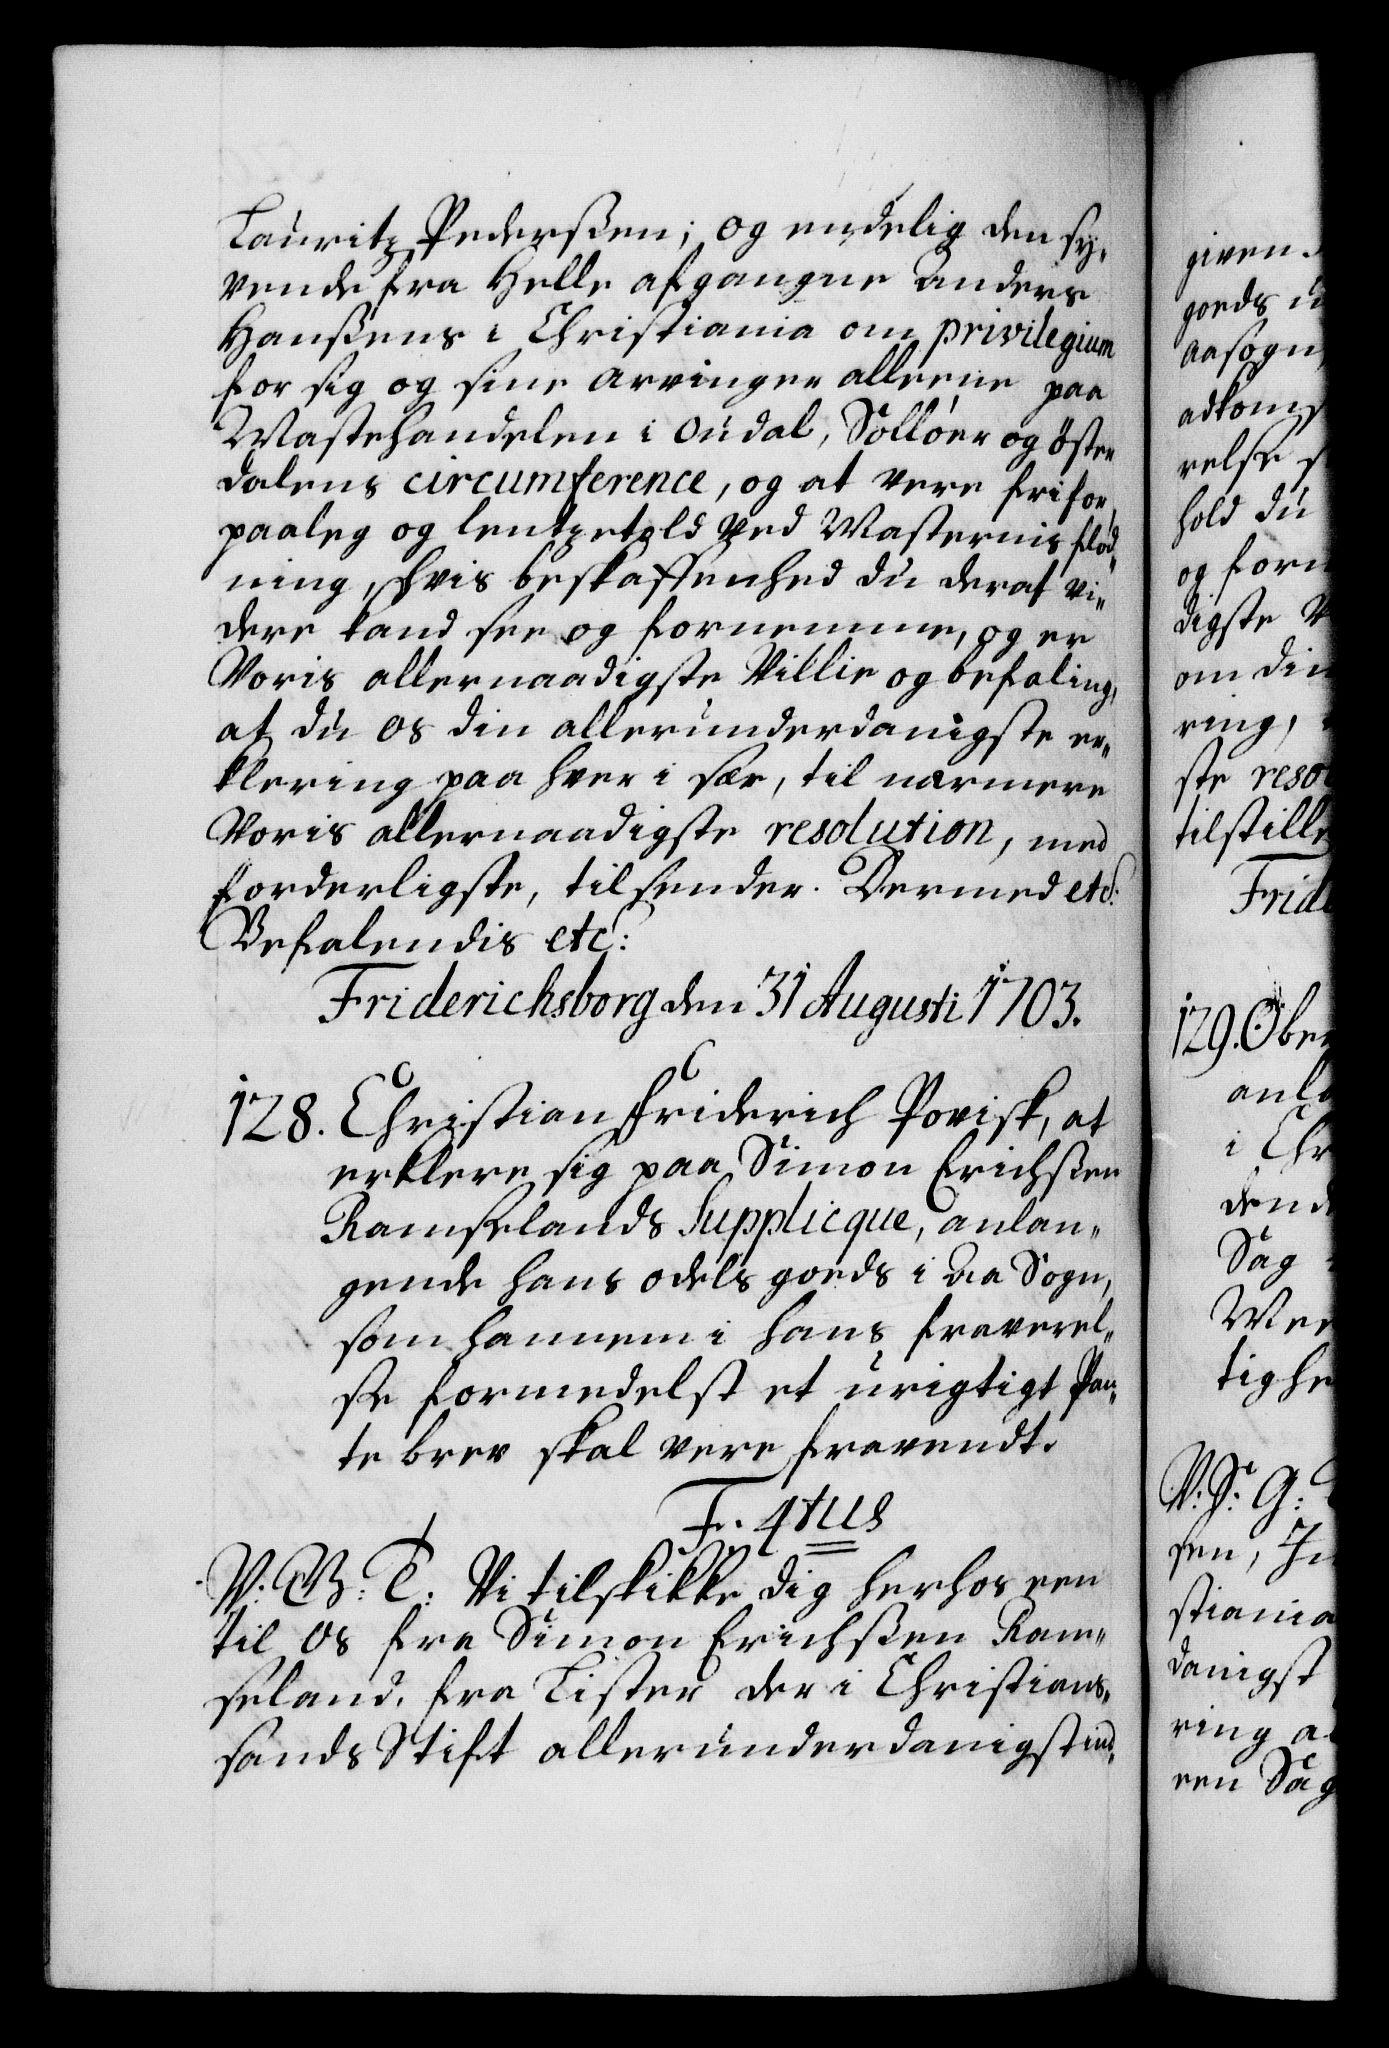 Lauritz Pederßen; og endelig den sy-
vende fra Helle afgangne Anders
Hanßens i Christiania om privilegium
for sig og sine arvinger alleene paa
Mastehandelen i Oudal, Sollöer og Öster
dalens circumference, og at vere fri for
paaleg og lentzetold ved Masternis flöd-
ning, hvis beskaffenhed du deraf vi-
dere kand see og fornemme, og er
Voris allernaadigste Villie og befaling,
at du os din allerunderdanigste er-
klering paa hver i sær, til nærmere
Voris allernaadigste resolution, med
forderligste, tilsender. Dermed etc:
Befalendis etc:
Friderichsborg den 31 Augusti 1703.
128. Christian Friderich Povisk, at
erklere sig paa Simon Erichßen
Ramselands Supplicque, anlan-
gende hans odels goeds i Aa Sogn,
som hannem i hans fraverel-
se formedelst et urigtigt Pan-
te brev skal vere fravendt.
F. 4tus
V. G. T: Vi tilskikke dig herhos een
til os fra Simon Erichßen Ram-
seland, fra Lister der i Christian-
sands Stift allerunderdanigst ind-
given
goeds u
aa sogn
adkoms
relse s
hold du
og forn
digste V
om din
ring,
ste reso
tilstille
Frid
129. Ober
anla
i Chr
dend
Sag
Wee
tighe
V: S: G:
sen, In
stiania
danigst
ring a
een Sag